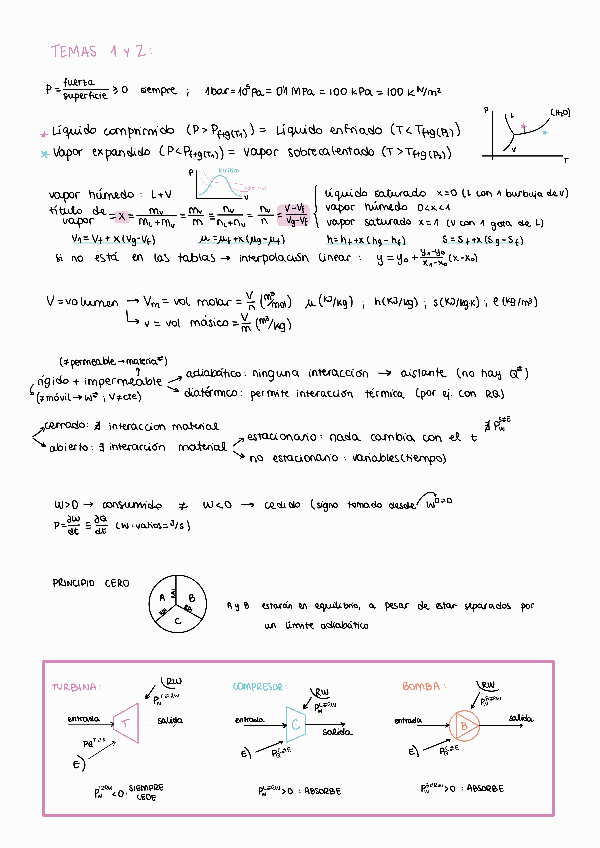 TEMAS 1 y 2:
P = fuerza / superficie ≥ 0 siempre ; 1 bar = 10⁵ Pa = 0'1 MPa = 100 kPa = 100 kN/m²
* Líquido comprimido (P > Pf+g(T1)) = Líquido enfriado (T < Tf+g(P1))
* Vapor expandido (P < Pf+g(T1)) = Vapor sobrecalentado (T > Tf+g(P1))
P L (H2O) V T
P V
vapor húmedo: L+V
título de vapor = x = mv / mL+mv = mv / m = nv / nL+nv = nv / n = V-Vf / Vg-Vf
líquido saturado x=0 (L con 1 burbuja de V)
vapor húmedo 0<x<1
vapor saturado x=1 (V con 1 gota de L)
V1 = Vf + x(Vg-Vf) μ = μf + x(μg-μf) h = hf + x(hg-hf) s = sf + x(sg-sf)
si no está en las tablas → interpolación linear: y = y0 + y1-y0 / x1-x0 (x-x0)
V = volumen → Vm = vol molar = V/n (m³/mol) μ (kJ/kg) ; h (kJ/kg) ; s (kJ/kg·K) ; ρ (kg/m³)
↳ v = vol másico = V/m (m³/kg)
(≠ permeable → materia)
rígido + impermeable
(≠ móvil → W ; V=cte)
adiabático: ninguna interacción → aislante (no hay Q)
diatérmico: permite interacción térmica (por ej. con RQ)
cerrado: ∄ interacción material
abierto: ∃ interacción material
estacionario: nada cambia con el t
no estacionario: variables (tiempo)
W>0 → consumido ≠ W<0 → cedido (signo tomado desde
P = ∂W/dt ≡ ∂Q/dt (W·vatios = J/s)
PRINCIPIO CERO
A B C
A y B estarán en equilibrio, a pesar de estar separados por
un límite adiabático
TURBINA: COMPRESOR: BOMBA:
RW RW RW
entrada T salida
entrada C salida
entrada B salida
E) E) E)
<0: SIEMPRE CEDE
>0 : ABSORBE
>0 : ABSORBE